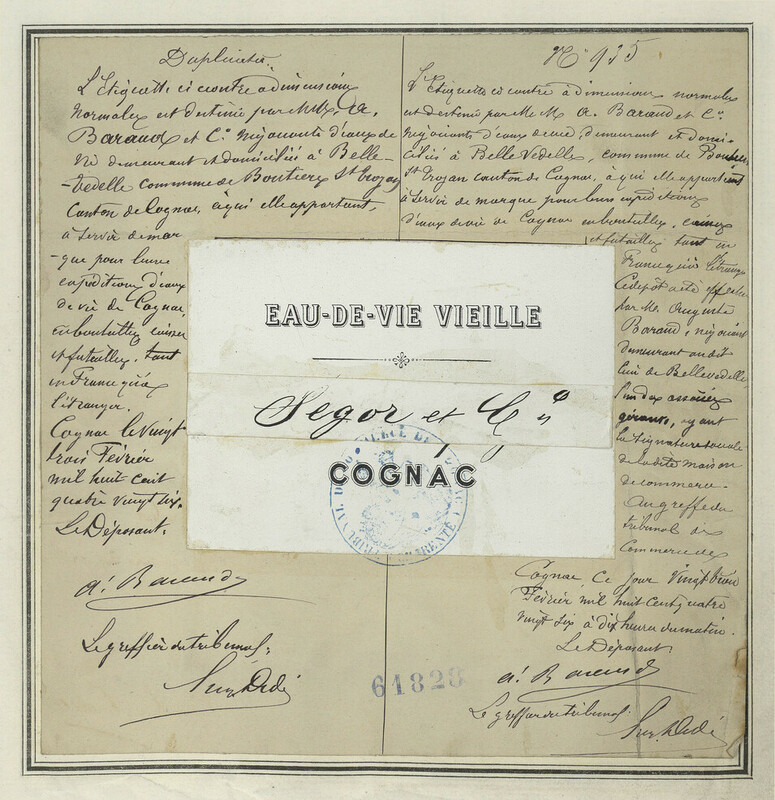 Duplicata.
L'Etiquette ci contre à dimensions
normales est destinée par MM. A.
Baraud et Cie. négociants d'eaux de
vie demeurant et domiciliés à Belle-
-vedelle commune de Boutiers St Trojan
Canton de Cognac, à qui elle appartient,
à servir de mar
-que pour leurs
expéditions d'eaux
de vie de Cognac,
en bouteilles caisses
et futailles, tant
en France qu'à
l'étranger.
Cognac le vingt
trois Février
mil huit cent
quatre vingt six.
Le Déposant.
A. Baraud
Le greffier du tribunal:
No 935
L'Etiquette ci contre à dimensions normales
est destinée par MM A. Baraud et Cie.
négociants d'eaux de vie, demeurant et domi-
ciliés à Belle Vedelle, commune de Boutiers
St Trojan canton de Cognac, à qui elle appartient
à servir de marque pour leurs expéditions
d'eaux de vie de Cognac en bouteilles, caisses
et futailles tant en
France qu'à l'étranger
Ce dépôt a été effectué
par Mr. Auguste
Baraud, négociant
demeurant au dit
lieu de Bellevedelle
l'un des associés
gérants, ayant
la signature sociale
de la dite maison
de commerce.
Au greffe du
tribunal de
Commerce de
Cognac, Ce jour Vingt trois
Février mil huit cent quatre
vingt six à dix heures du matin.
Le Déposant
A. Baraud
Le greffier du tribunal:
EAU-DE-VIE VIEILLE
Segor et Cie
COGNAC
61828